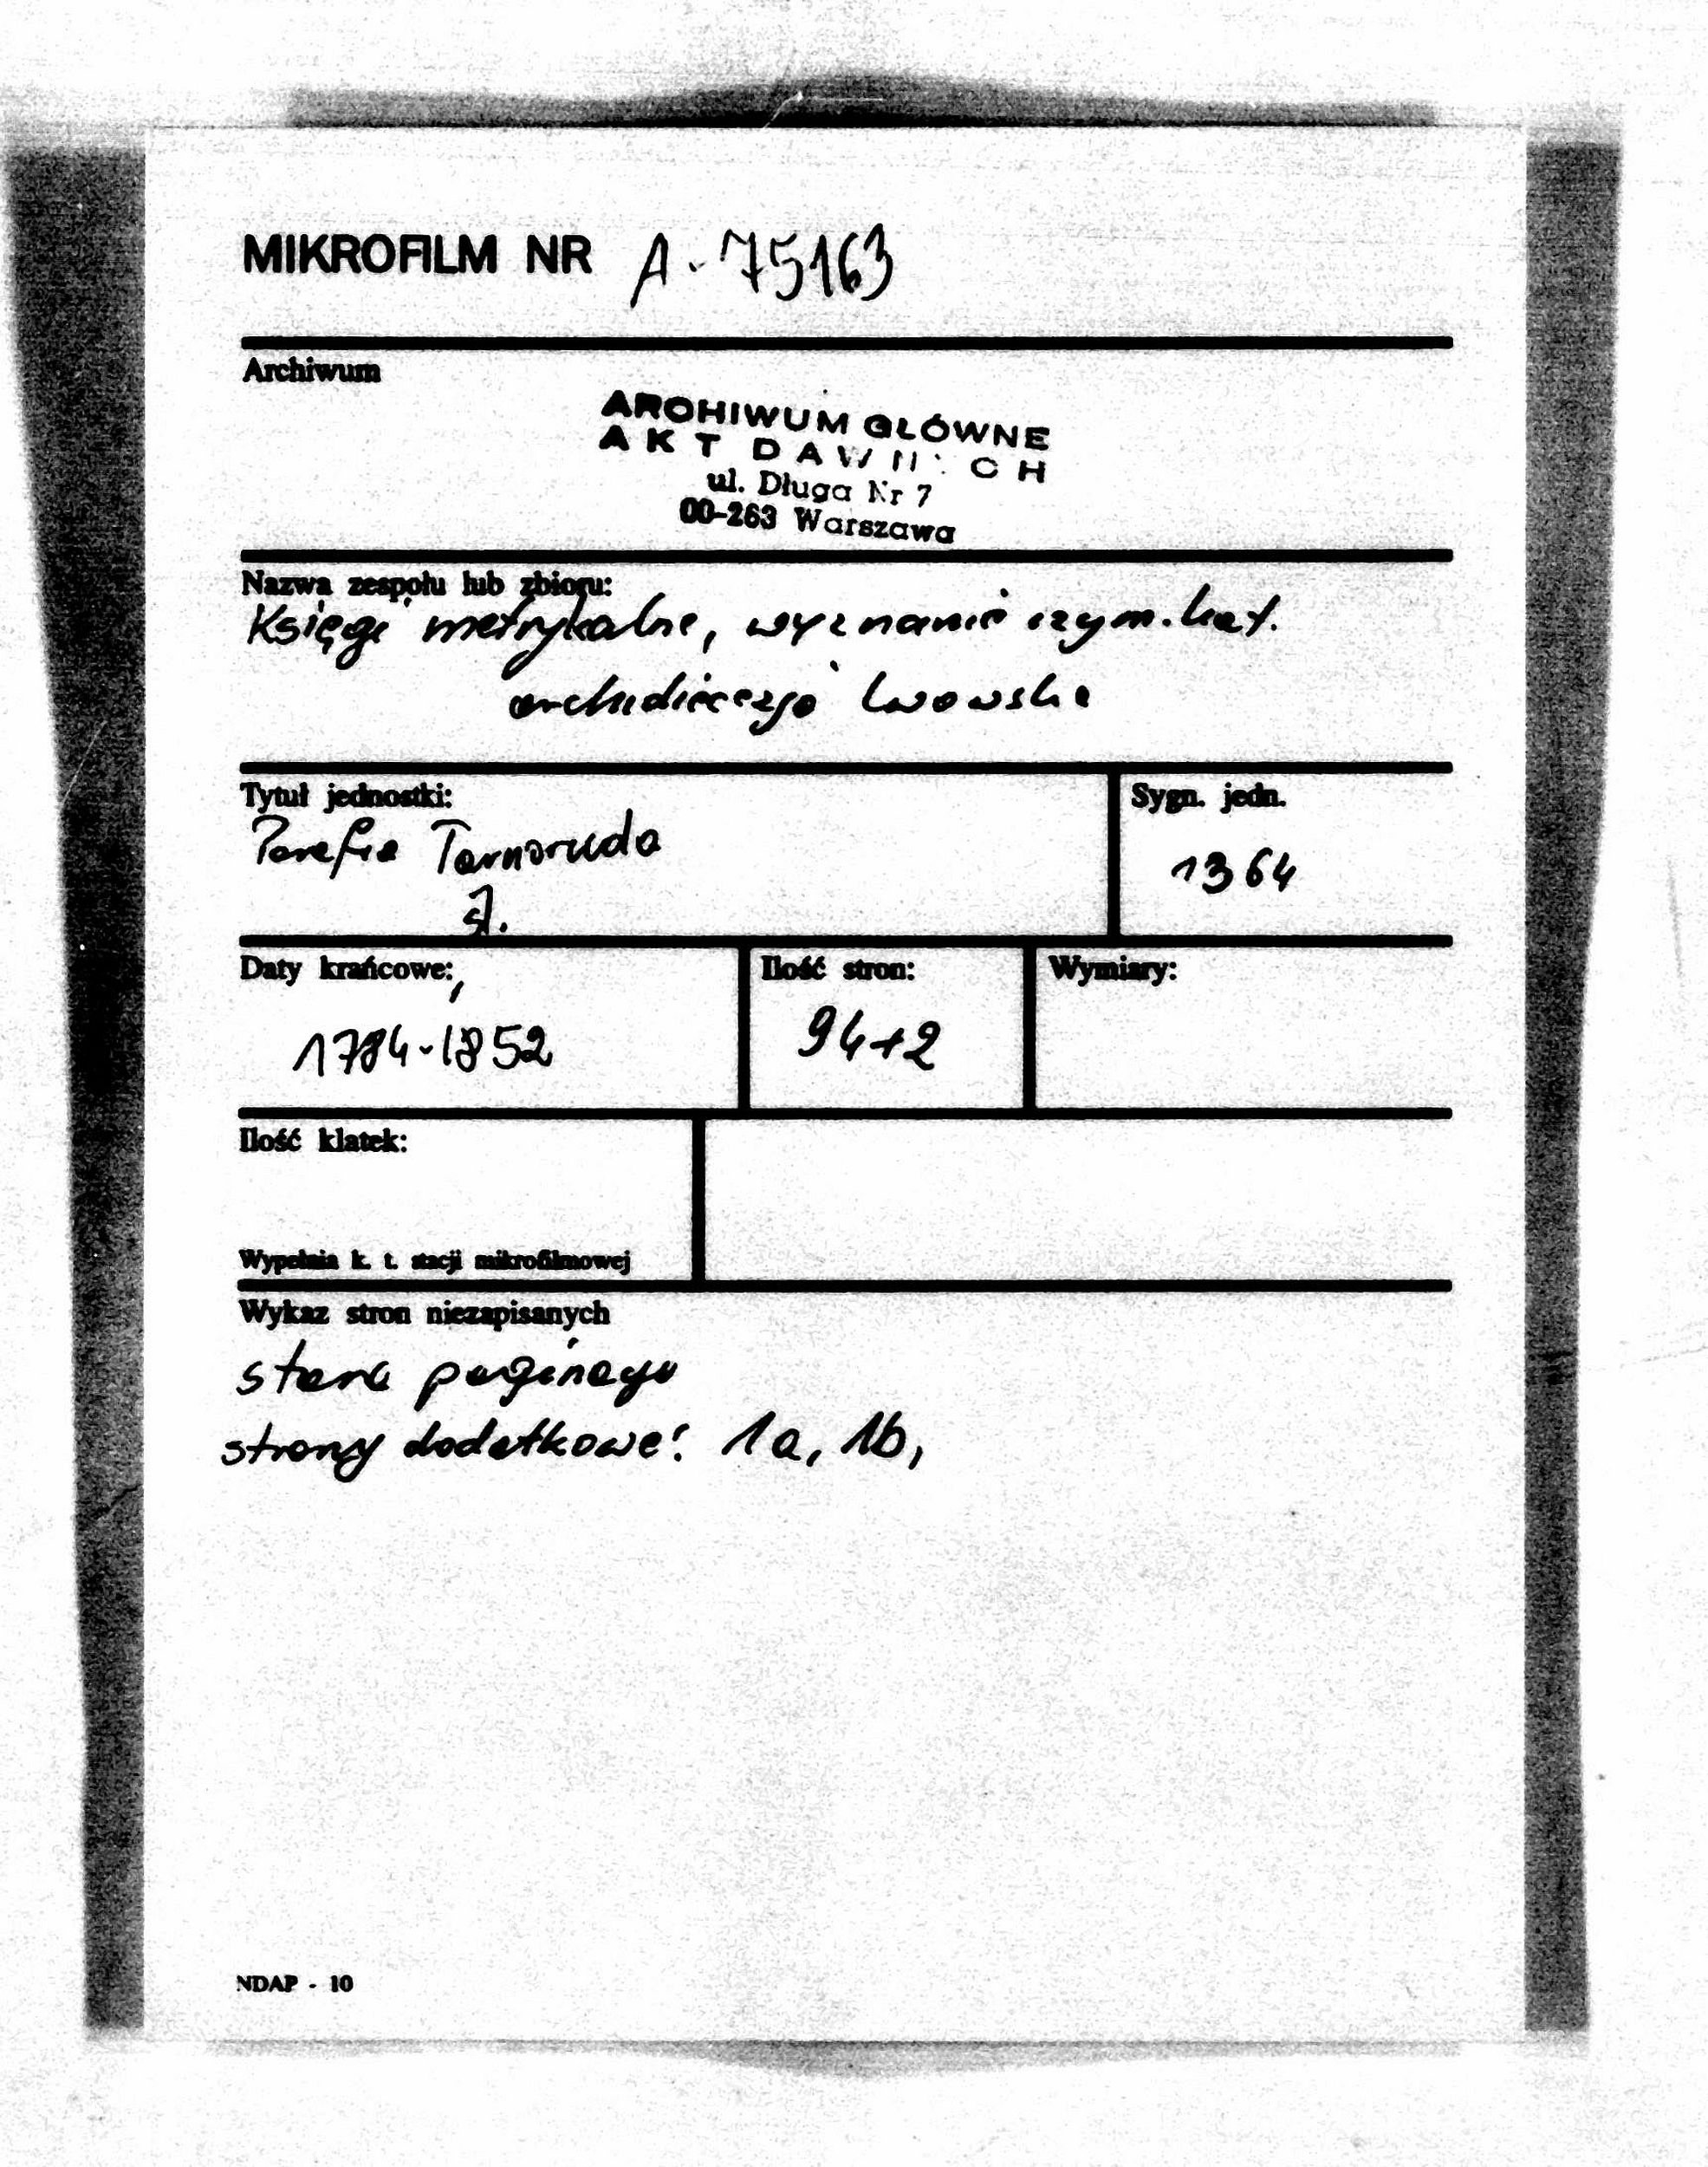 MIKROFILM NR A-75163
Archiwum
ARCHIWUM GŁÓWNE
AKT DAWNYCH
ul. Długa Nr 7
00-263 Warszawa
Nazwa zespołu lub zbioru:
Księgi metrykalne, wyznanie rzym. kat.
archidiecezja lwowska
Tytuł jednostki:
Parafia Tarnoruda
Sygn. jedn.
1364
Daty krańcowe:
1784-1852
Ilość stron:
94+2
Wymiary:
Ilość klatek:
Wypełnia k. t. stacji mikrofilmowej
Wykaz stron niezapisanych
stara paginacja
strony dodatkowe: 1a, 1b,
NDAP - 10